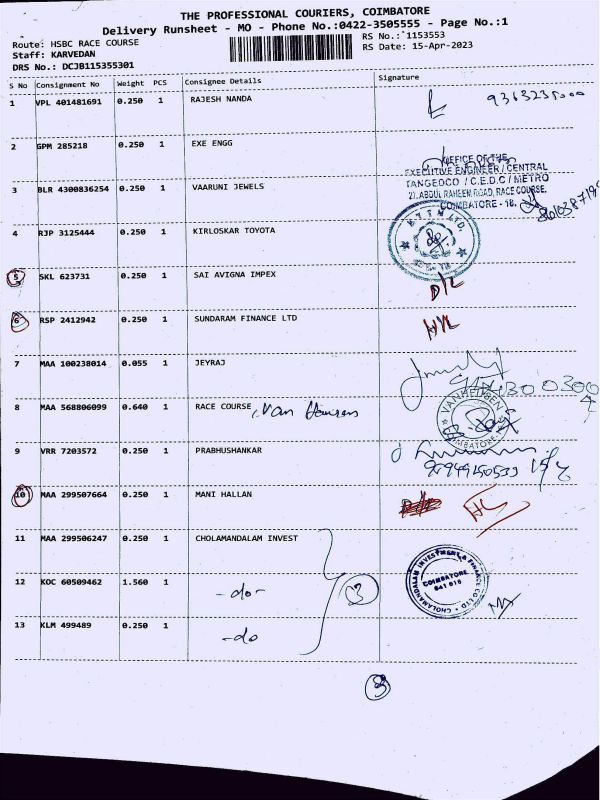 THE PROFESSIONAL COURIERS, COIMBATORE
Delivery Runsheet - MO - Phone No.:0422-3505555 - Page No.:1
Route: HSBC RACE COURSE
RS No.: 1153553
Staff: KARVEDAN
RS Date: 15-Apr-2023
DRS No.: DCJB115355301
S No Consignment No Weight PCS Consignee Details Signature
1 VPL 401481691 0.250 1 RAJESH NANDA
2 GPM 285218 0.250 1 EXE ENGG
OFFICE OF THE
EXECUTIVE ENGINEER / CENTRAL
TANGEDCO / C.E.D.C / METRO
21, ABDUL RAHEEM ROAD, RACE COURSE,
COIMBATORE - 18.
3 BLR 4300836254 0.250 1 VAARUNI JEWELS
4 RJP 3125444 0.250 1 KIRLOSKAR TOYOTA
5 SKL 623731 0.250 1 SAI AVIGNA IMPEX D/L
6 RSP 2412942 0.250 1 SUNDARAM FINANCE LTD
7 MAA 100238014 0.055 1 JEYRAJ
8 MAA 568806099 0.640 1 RACE COURSE, Van Heusen
VANHEUSEN
COIMBATORE
9 VRR 7203572 0.250 1 PRABHUSHANKAR
10 MAA 299507664 0.250 1 MANI HALLAN
11 MAA 299506247 0.250 1 CHOLAMANDALAM INVEST
12 KOC 60509462 1.560 1 -do- 3
CHOLAMANDALAM INVESTMENT & FINANCE CO LTD
COIMBATORE
641 018
13 KLM 499489 0.250 1 -do
3